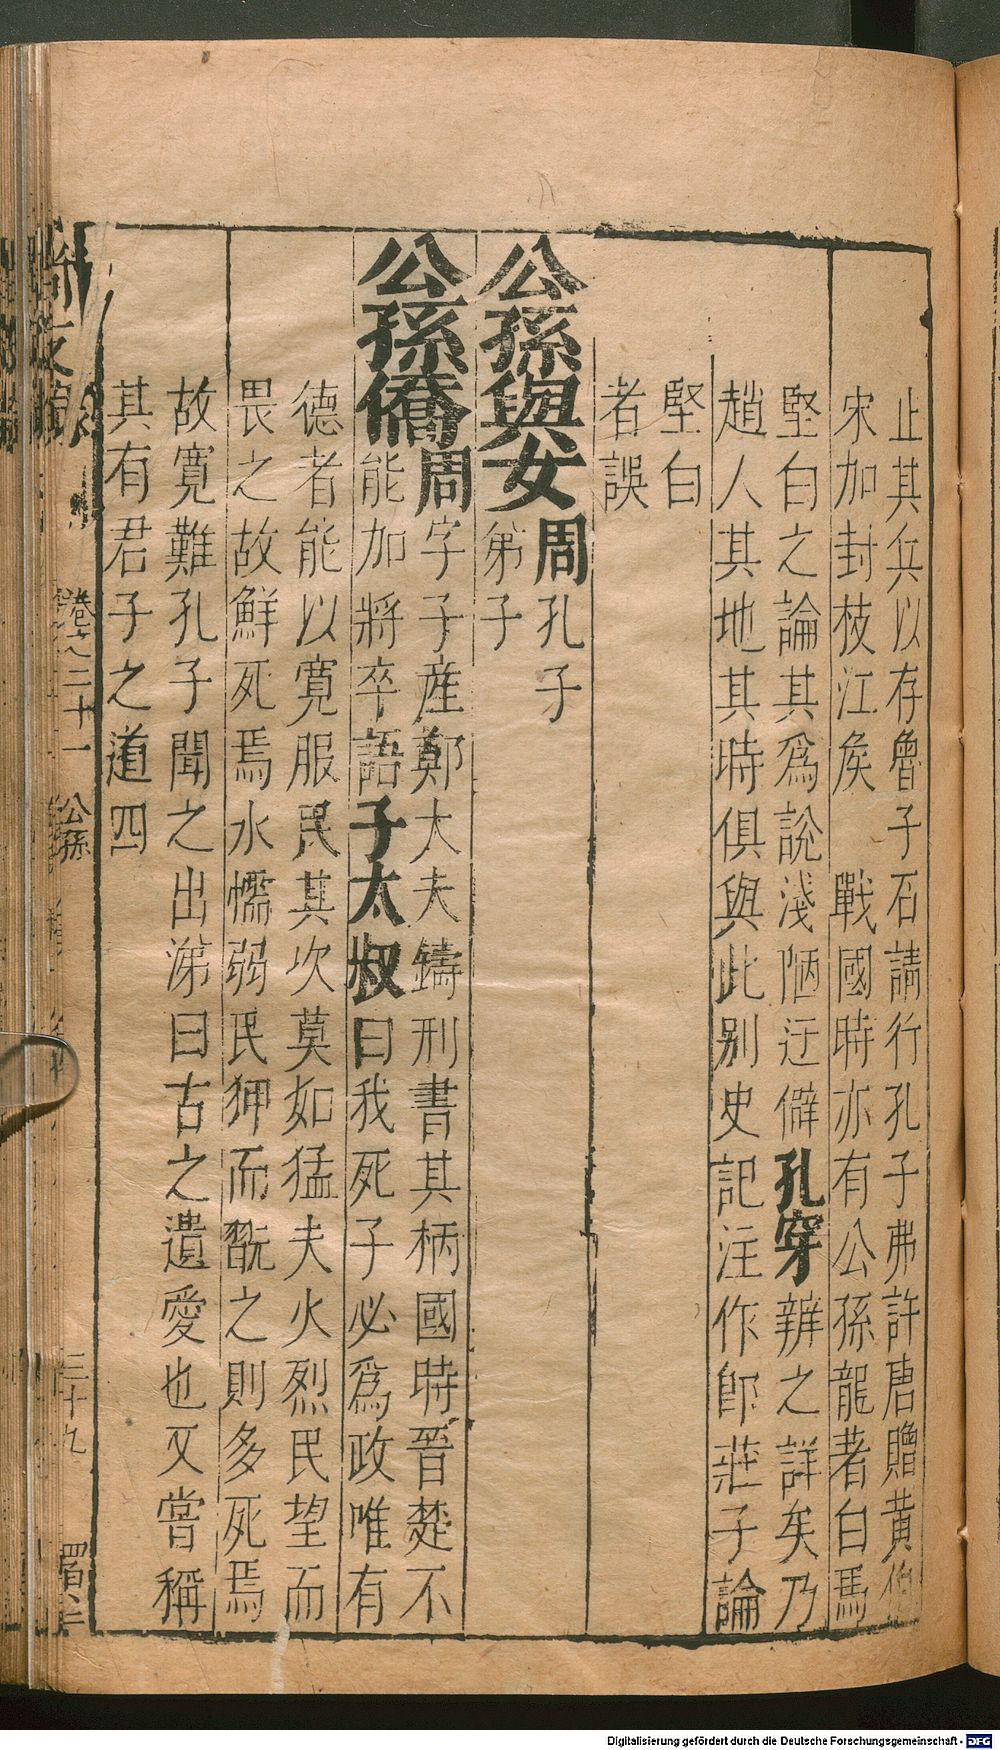 止其兵以存魯子石請行孔子弗許唐贈黃伯
宋加封枝江矦 戰國時亦有公孫龍著白馬
堅白之論其爲說淺陋迂僻孔穿辨之詳矣乃
趙人其地其時俱與此别史記注作卽莊子論
堅白
者誤
公孫與女周孔子
弟子
公孫僑周字子産鄭大夫鑄刑書其柄國時晉楚不
能加將卒語子太叔曰我死子必爲政唯有
德者能以寛服民其次莫如猛夫火烈民望而
畏之故鮮死焉水懦弱民狎而翫之則多死焉
故寬難孔子聞之出涕曰古之遺愛也又嘗稱
其有君子之道四
卷之三十一 公孫 三十九
Digitalisierung gefördert durch die Deutsche Forschungsgemeinschaft - DFG